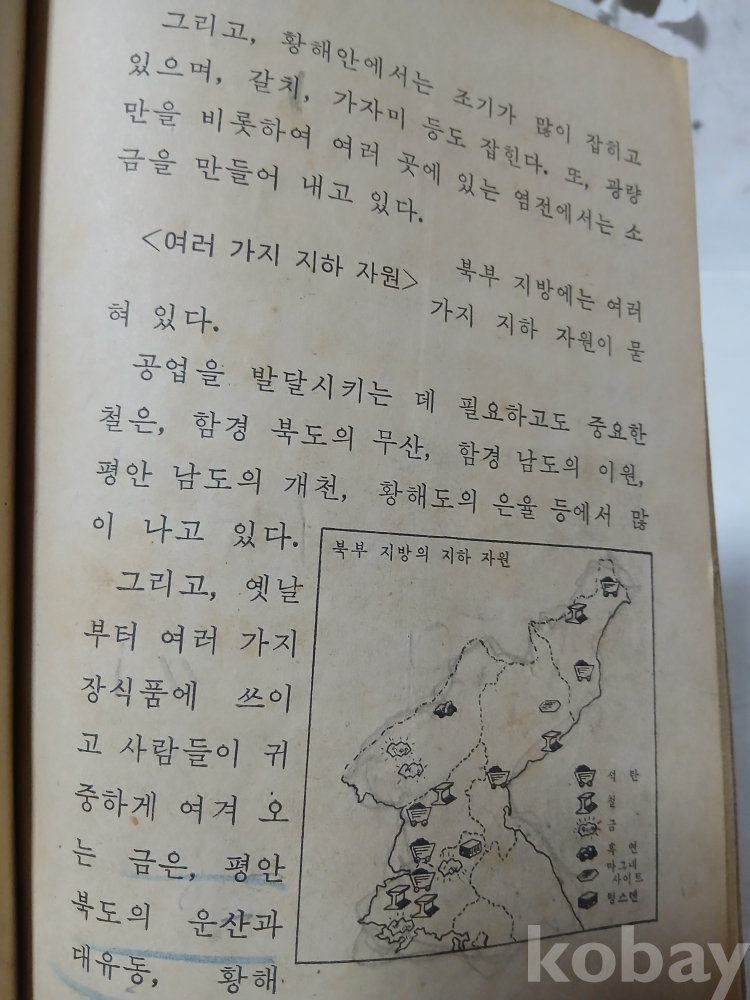 그리고, 황해안에서는 조기가 많이 잡히고
있으며, 갈치, 가자미 등도 잡힌다. 또, 광량
만을 비롯하여 여러 곳에 있는 염전에서는 소
금을 만들어 내고 있다.
<여러 가지 지하 자원> 북부 지방에는 여러
가지 지하 자원이 묻
혀 있다.
공업을 발달시키는 데 필요하고도 중요한
철은, 함경 북도의 무산, 함경 남도의 이원,
평안 남도의 개천, 황해도의 은율 등에서 많
이 나고 있다.
그리고, 옛날
부터 여러 가지
장식품에 쓰이
고 사람들이 귀
중하게 여겨 오
는 금은, 평안
북도의 운산과
대유동, 황해
북부 지방의 지하 자원
석탄
철
금
흑연
마그네
사이트
텅스텐
kobay